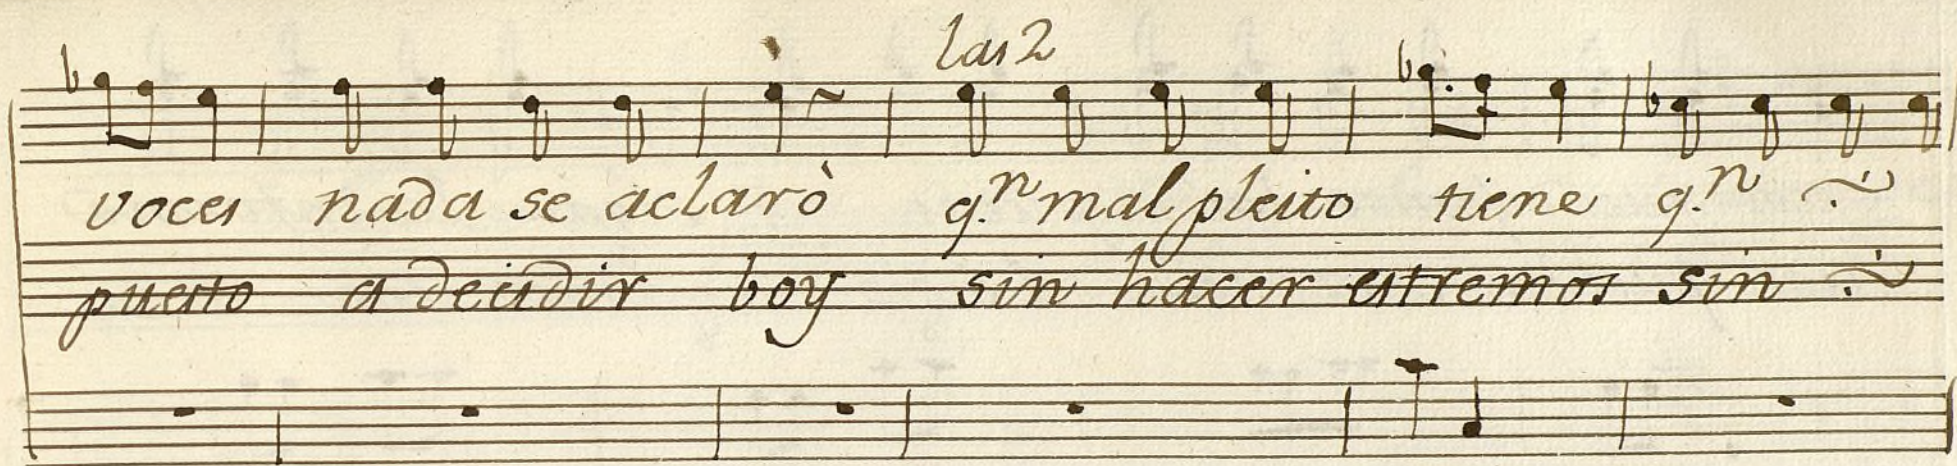 las 2
voces nada se aclarò q.n mal pleito tiene q.n
puesto a decidir boy sin hacer estremos sin